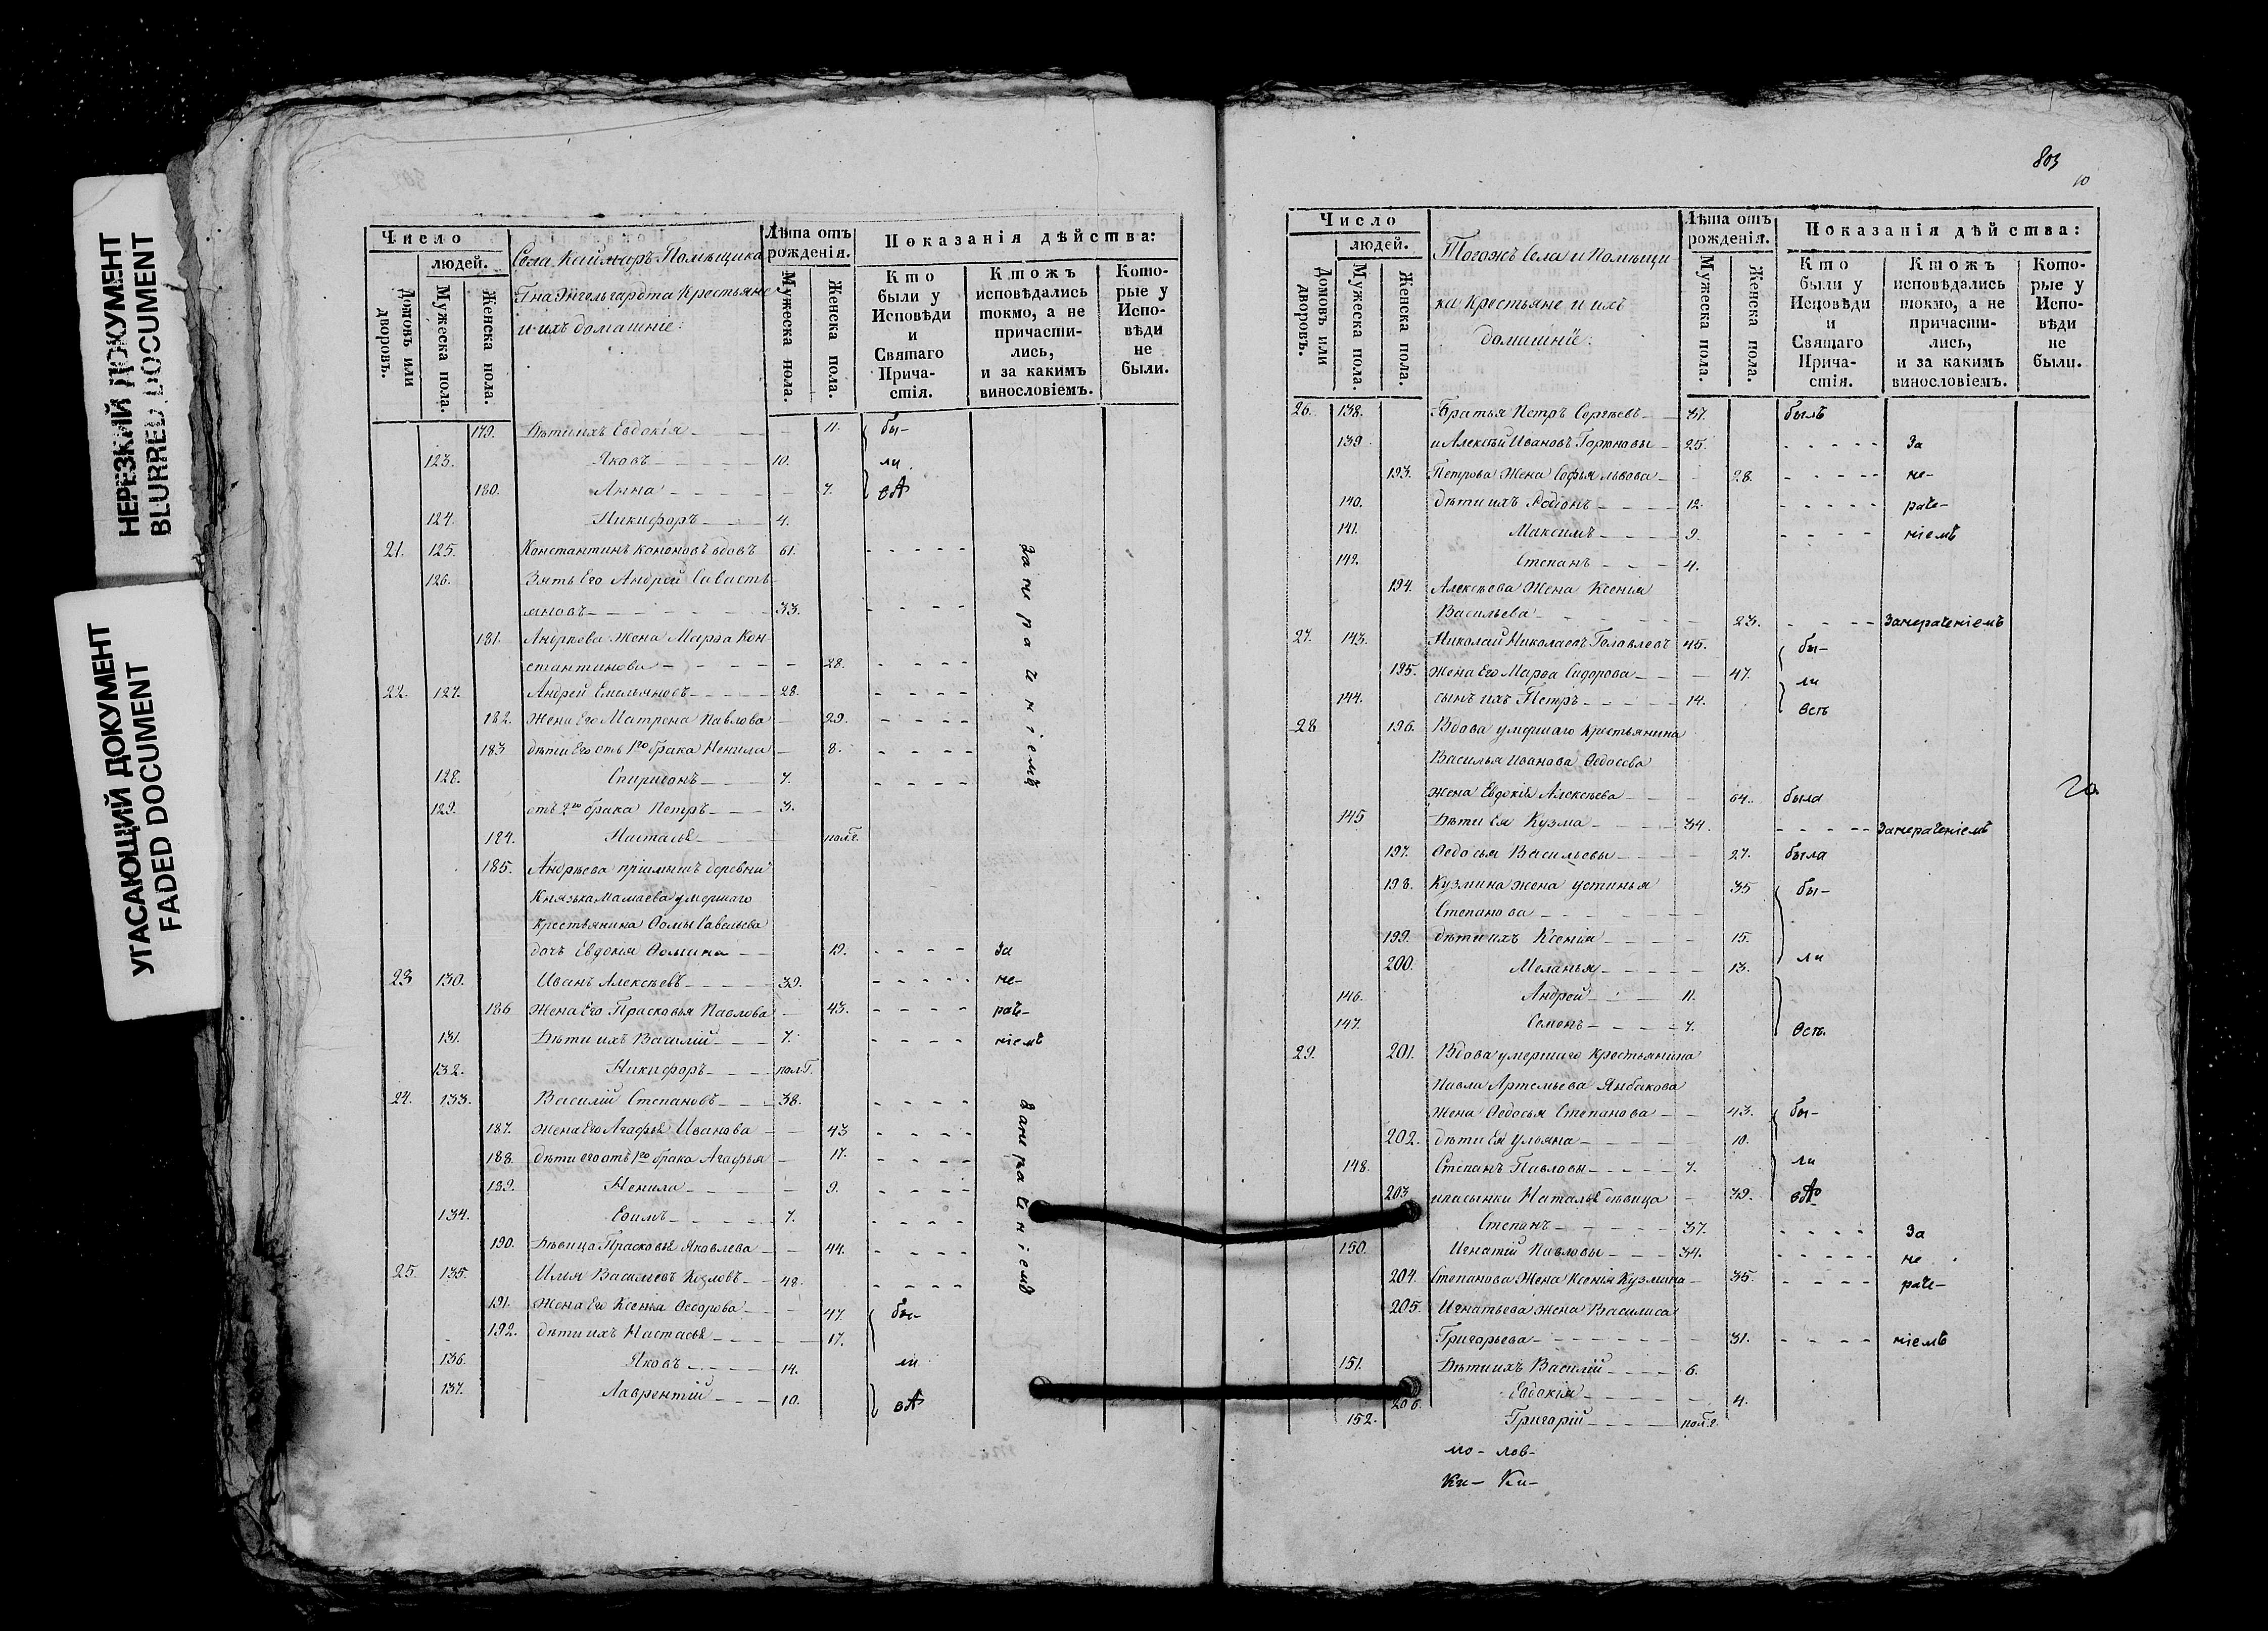 НЕРЕЗКИЙ ДОКУМЕНТ
BLURRED DOCUMENT
УГАСАЮЩИЙ ДОКУМЕНТ
FADED DOCUMENT
Число
людей.
Домовъ или дворовъ.
Мужеска пола.
Женска пола.
Села Каймаръ Помѣщика
Гна Энгельгардта Крестьяне
и ихъ домашніе:
Лѣта отъ рожденія.
Мужеска пола.
Женска пола.
Показанія дѣйства:
Кто были у Исповѣди и Святаго Прича-стія.
Ктожъ исповѣдались токмо, а не причасти-лись, и за какимъ винословіемъ.
Кото-рые у Испо-вѣди не были.
179. Дѣти ихъ Евдокія 11. бы-
123. Яковъ 10. ли
180. Анна 7.
124. Никифоръ 4.
21. 125. Константинъ Кононовъ вдовъ 61.
126. Зять Его Андрей Савасть
яновъ 33.
181. Андрѣева Жена Марѳа Кон-
стантинова 28.
22. 127. Андрей Емельяновъ 28.
182. Жена Его Матрена Павлова 29.
183 дѣти Его отъ 1го брака Ненила 8.
128. Спиридонъ 7.
129. отъ 2го брака Петръ 3.
184. Настасья пол.г.
185. Андрѣева пріемышъ деревни
Князька Мамаева умершаго
Крестьянина Ѳомы Савельева
дочь Евдокія Ѳомина 19. За
23 130. Иванъ Алексѣевъ 39. не-
186 Жена Его Прасковья Павлова 43. раче-
131. Дѣти ихъ Василій 7. ніемъ
132. Никифоръ пол.г.
24. 133. Василій Степановъ 38.
187. Жена Его Агафья Иванова 43
188. дѣти его отъ 1го брака Агафья 17.
189. Ненила 9.
134. Ефимъ 7.
190. Дѣвица Прасковья Яковлева 44.
25. 135. Илья Васильевъ Козловъ 48.
191. Жена Его Ксенія Ѳедорова 47. бы-
192. дѣти ихъ Настасья 17.
136. Яковъ 14. ли
137. Лаврентій 10.
За не ра че ніемъ
За не ра че ніемъ
803
10
Число
людей.
Домовъ или дворовъ.
Мужеска пола.
Женска пола.
Тогожъ Села и Помѣщи
ка Крестьяне и ихъ
домашніе:
Лѣта отъ рожденія.
Мужеска пола.
Женска пола.
Показанія дѣйства:
Кто были у Исповѣди и Святаго Прича-стія.
Ктожъ исповѣдались токмо, а не причасти-лись, и за какимъ винословіемъ.
Кото-рые у Испо-вѣди не были.
26. 138. Братья Петръ Сергѣевъ 37. былъ
139. и Алексѣй Ивановъ Горюновы 25. За
193. Петрова Жена Софья Львова 28. не-
140. дѣти ихъ Родіонъ 12. раче-
141. Максимъ 9. ніемъ
142. Степанъ 4.
194. Алексѣева Жена Ксенія
Васильева 23. Занераченіемъ
27. 143. Николай Николаевъ Головлевъ 45. бы-
195. Жена Его Марѳа Сидорова 47. ли
144. сынъ ихъ Петръ 14. Всѣ
28 196. Вдова умершаго Крестьянина
Василья Иванова Ѳедосѣева
Жена Евдокія Алексѣева 64. была
145 Дѣти Ея Кузма 34. Занераченіемъ
197. Ѳедосья Васильевы 27. была
198. Кузмина Жена Устинья 35 бы-
Степанова
199. дѣти ихъ Ксенія 15.
200. Меланья 13. ли
146. Андрей 11.
147. Семенъ 7. Всѣ.
29. 201. Вдова умершаго Крестьянина
Павла Артемьева Янбакова
Жена Ѳедосья Степанова 43. бы-
202. дѣти Ея Ульяна 10.
148. Степанъ Павловы 7. ли
203 ипасынки Наталья дѣвица 39.
Степанъ 37. За
150. Игнатій Павловы 34. не
204. Степанова Жена Ксенія Кузмина 35. раче-
205. Игнатьева Жена Василиса
Григорьева 31. ніемъ
151. Дѣти ихъ Василій 6.
206. Евдокія 4.
152. Григорій пол.г.
мо- лов-
Ки- Ки-